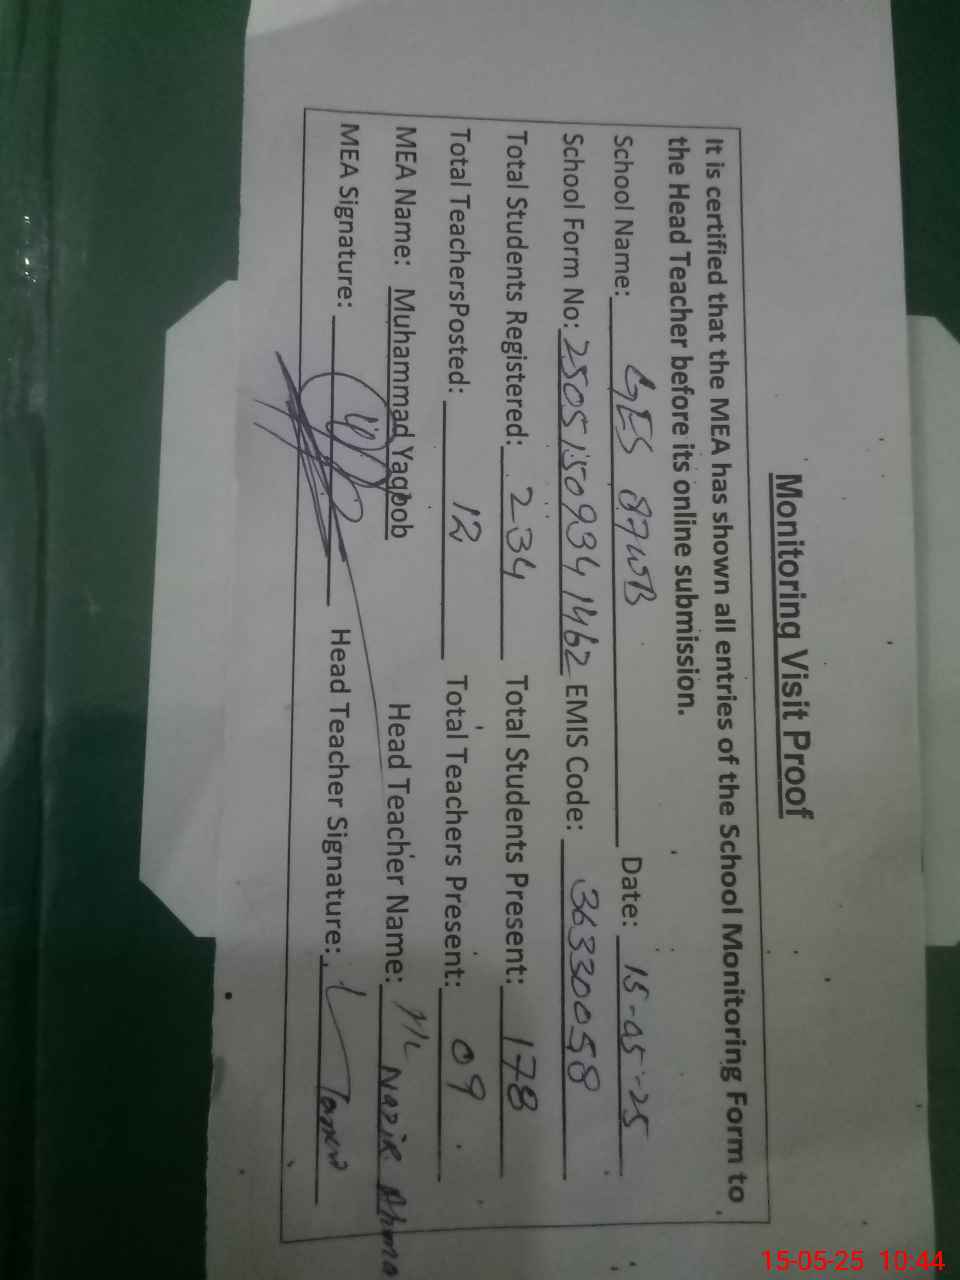 Monitoring Visit Proof
It is certified that the MEA has shown all entries of the School Monitoring Form to
the Head Teacher before its online submission.
School Name: GES 87WB Date: 15-05-25
School Form No: 25051509341462 EMIS Code: 36330058
Total Students Registered: 234 Total Students Present: 178
Total TeachersPosted: 12 Total Teachers Present: 09
MEA Name: Muhammad Yaqoob Head Teacher Name: Nazir Ahma
MEA Signature: Head Teacher Signature:
15-05-25 10:44